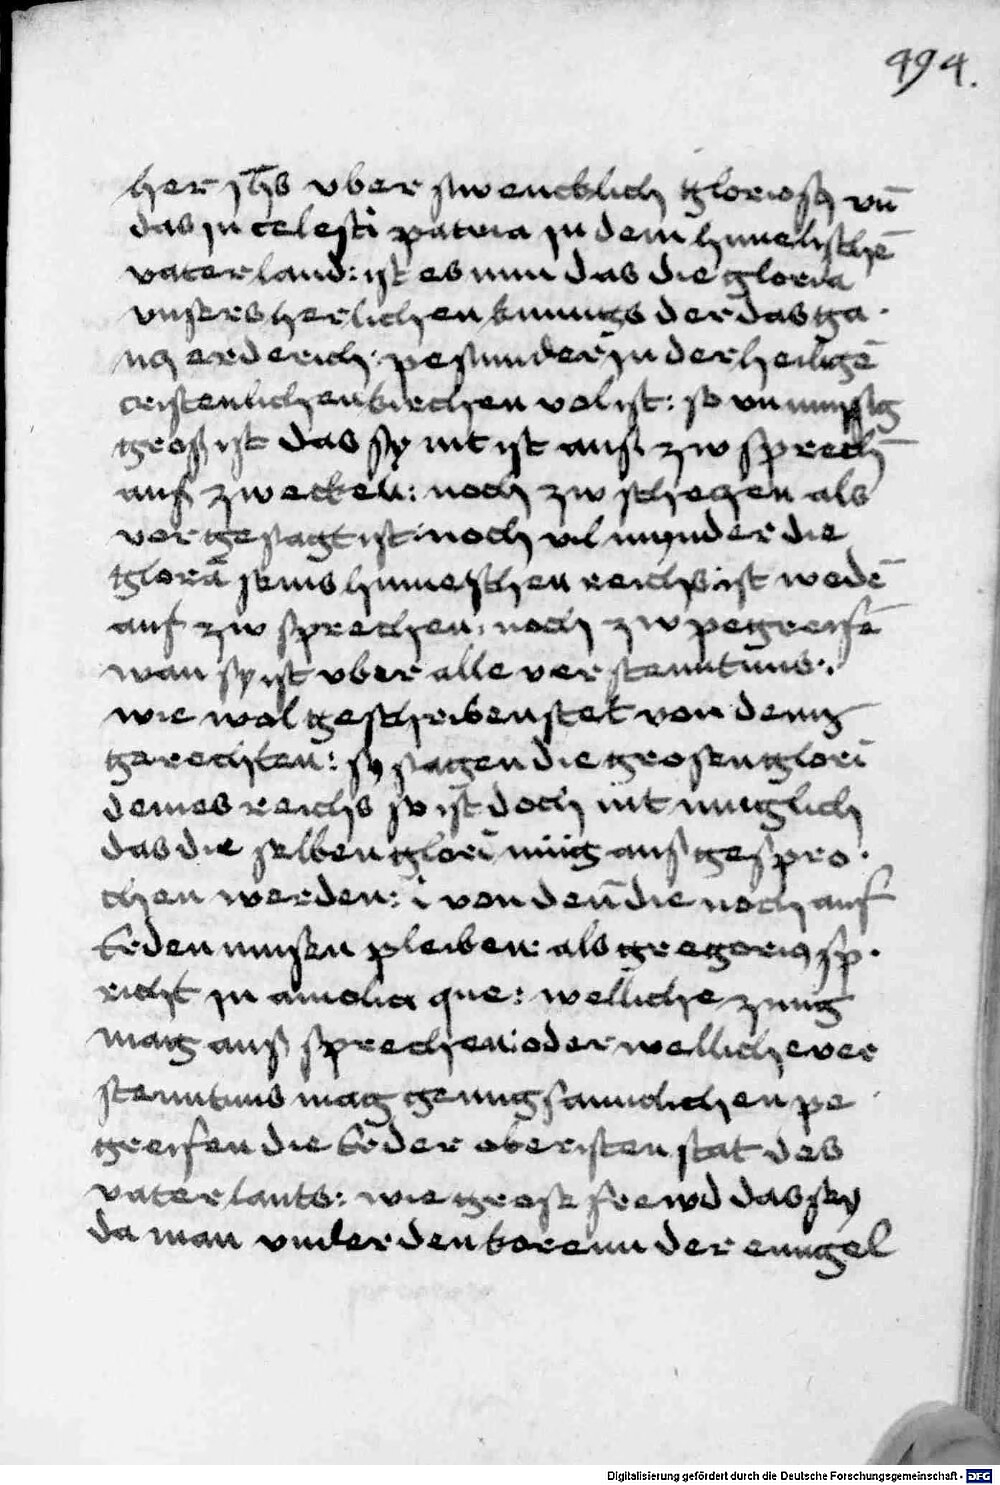 494.
her jhs vber swencklich glorioß vn̄
das in celesti patria in dem himelischē
vaterland: ist es nun das die gloria
vnsers herlichen kunigs der das ga-
ncz erderich: pesunder in der heiligē
cristenlichen kirchen vol ist: so vn mussig
groß ist das sy nit ist auß zw sprechn̄
auß zw ecken: noch zw sheczen als
vor gesagt ist noch vil mynder die
gloria seins himelschen reichs ist wedē
auß zw sprechen: noch zw pegreifē
wan sy ist vber alle verstentnus.
wie wol geschriben stet von denn
gerechten: sy sagen die grosen glori
deines reichs so ist doch nit muglich
das die selben glori mug auß gespro-
chen werden: von den die noch auf
Erden musen pleiben als gregorius sp-
richt in omelia que: welliche zung
mag auß sprechen: oder welliche ver
stentnus mag genugsamclichen pe
greifen die Er der obersten stat des
vaterlants: wie grose frewd das sey
da man vnder den korenn der enngel
Digitalisierung gefördert durch die Deutsche Forschungsgemeinschaft - DFG